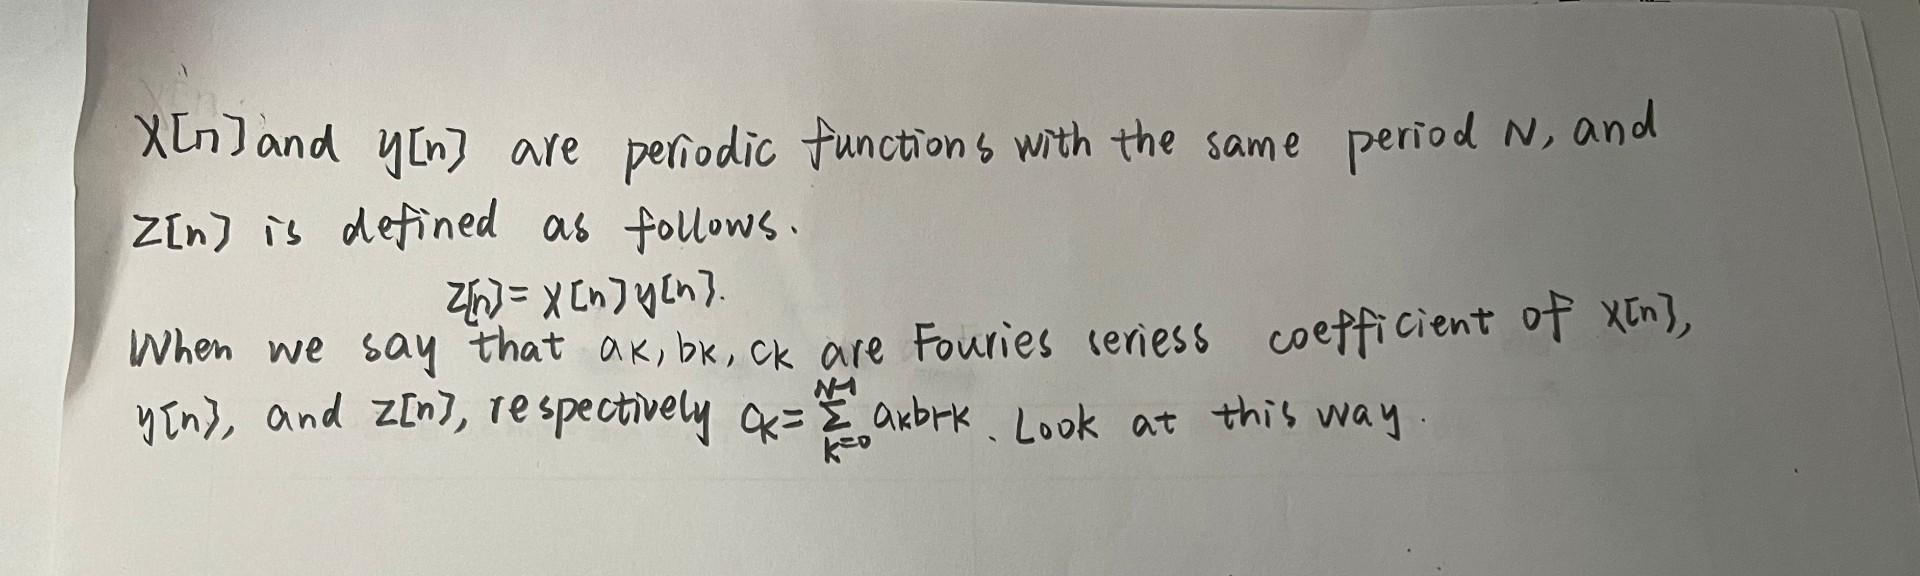 x[n] and y[n] are periodic functions with the same period N, and
z[n] is defined as follows.
z[n] = x[n]y[n].
When we say that ak, bk, ck are Fouries seriess coefficient of x[n],
y[n], and z[n], respectively ck = \sum_{k=0}^{N-1} akbr-k. Look at this way.